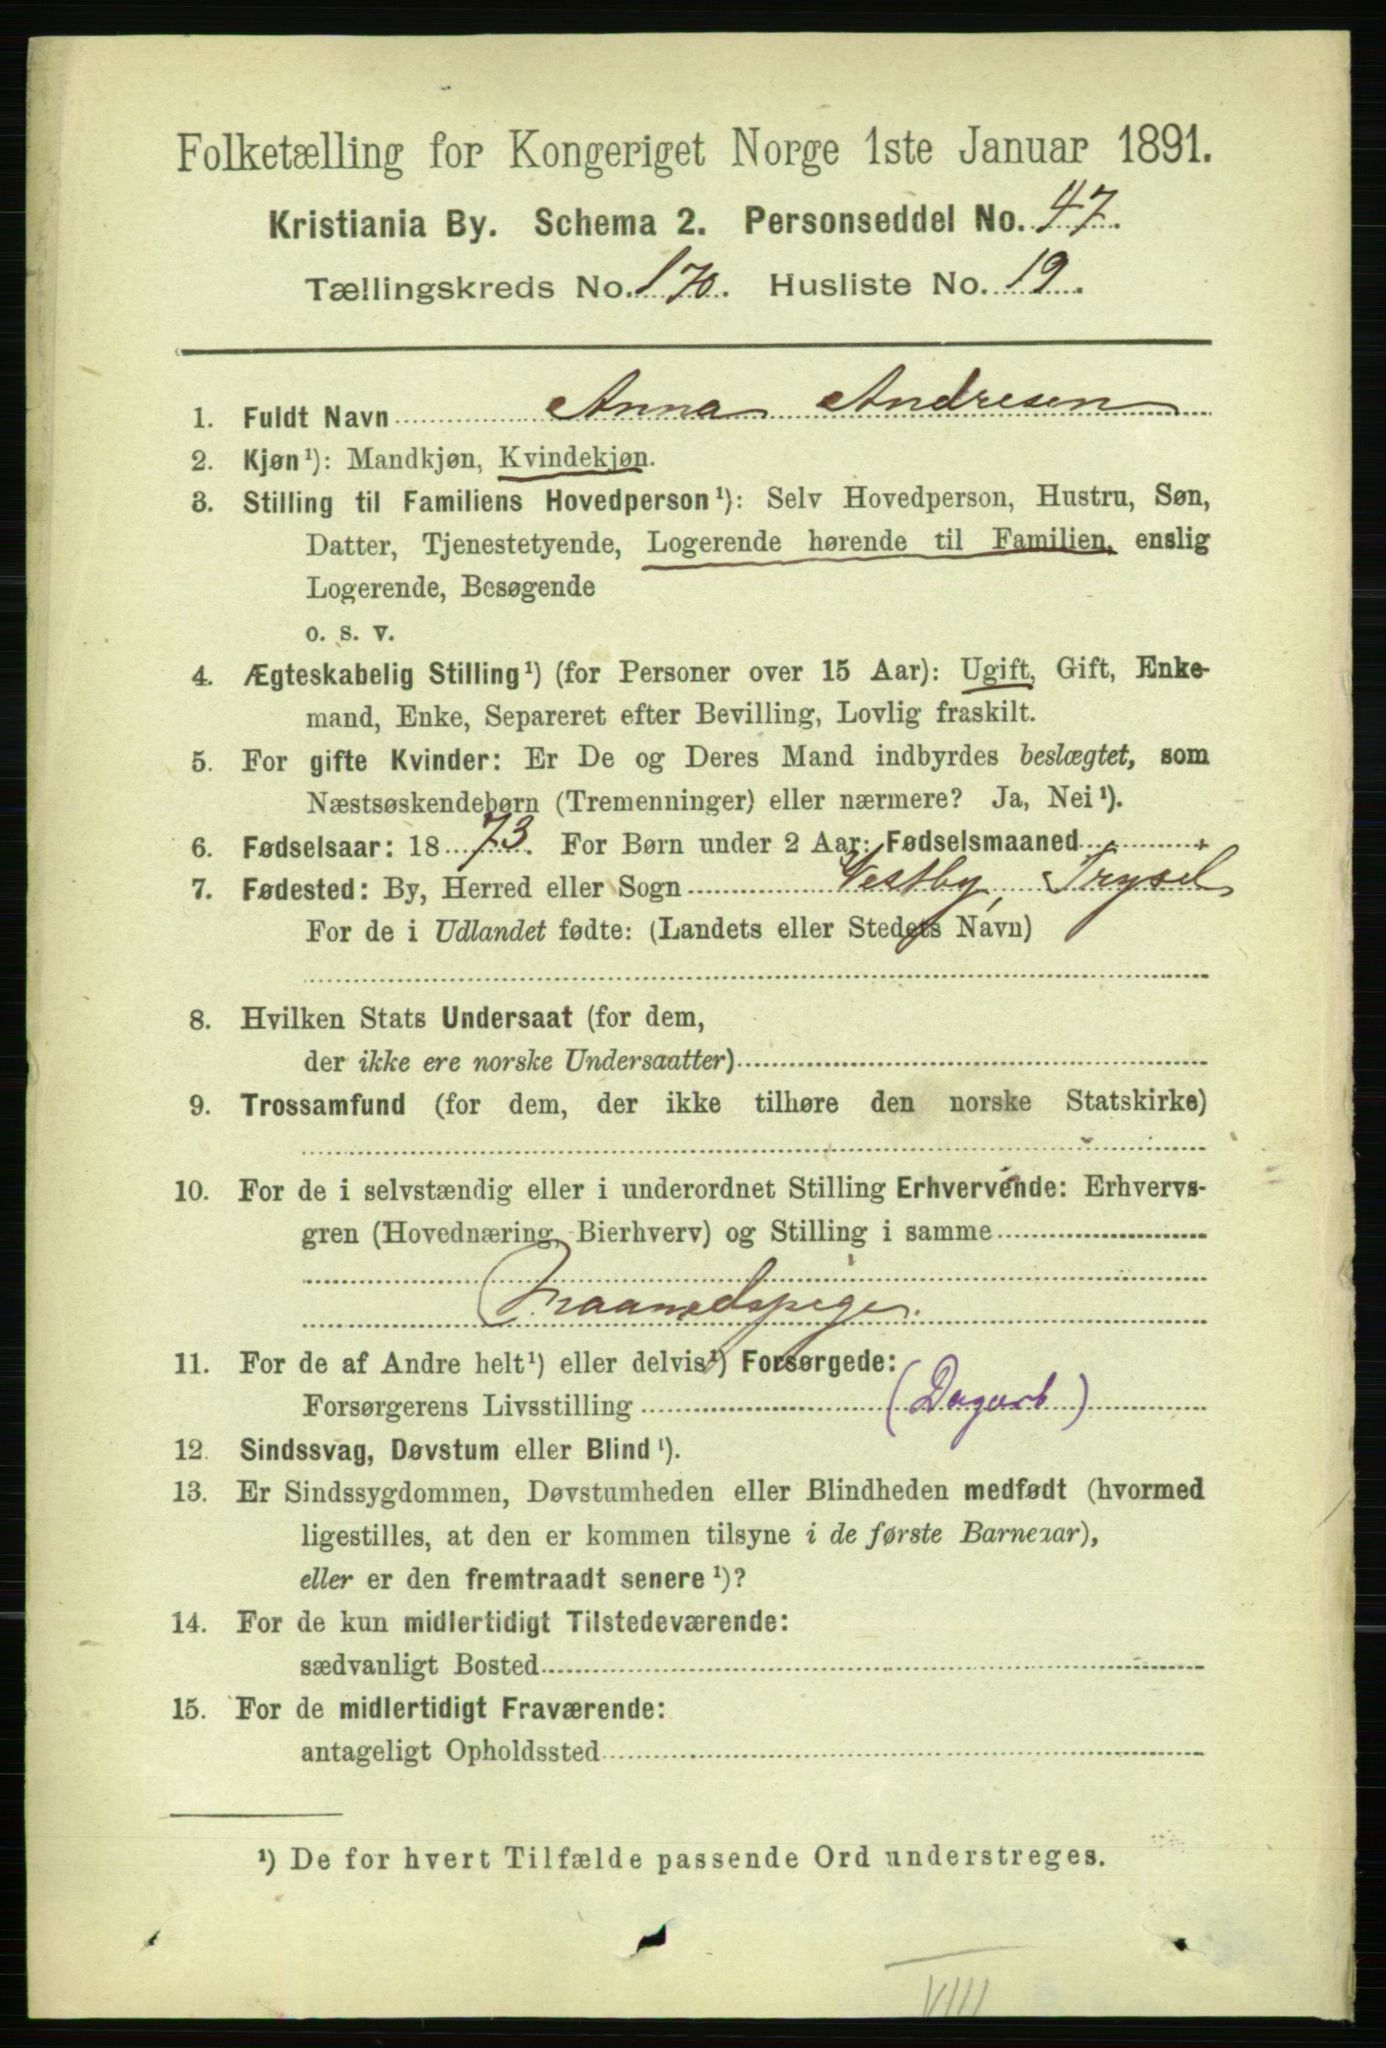 Folketælling for Kongeriget Norge 1ste Januar 1891.
Kristiania By. Schema 2. Personseddel No. 47.
Tællingskreds No. 170. Husliste No. 19.
1. Fuldt Navn Anna Andresen
2. Kjøn¹): Mandkjøn, Kvindekjøn.
3. Stilling til Familiens Hovedperson¹): Selv Hovedperson, Hustru, Søn,
Datter, Tjenestetyende, Logerende hørende til Familien, enslig
Logerende, Besøgende
o. s. v.
4. Ægteskabelig Stilling¹) (for Personer over 15 Aar): Ugift, Gift, Enke-
mand, Enke, Separeret efter Bevilling, Lovlig fraskilt.
5. For gifte Kvinder: Er De og Deres Mand indbyrdes beslægtet, som
Næstsøskendebørn (Tremenninger) eller nærmere? Ja, Nei¹).
6. Fødselsaar: 1873. For Børn under 2 Aar: Fødselsmaaned
7. Fødested: By, Herred eller Sogn Vestby, Trysel
For de i Udlandet fødte: (Landets eller Stedets Navn)
8. Hvilken Stats Undersaat (for dem,
der ikke ere norske Undersaatter)
9. Trossamfund (for dem, der ikke tilhøre den norske Statskirke)
10. For de i selvstændig eller i underordnet Stilling Erhvervende: Erhvervs-
gren (Hovednæring, Bierhverv) og Stilling i samme
Maanedspige.
11. For de af Andre helt¹) eller delvis¹) Forsørgede:
Forsørgerens Livsstilling (Dagarb)
12. Sindssvag, Døvstum eller Blind¹).
13. Er Sindssygdommen, Døvstumheden eller Blindheden medfødt (hvormed
ligestilles, at den er kommen tilsyne i de første Barneaar),
eller er den fremtraadt senere¹)?
14. For de kun midlertidigt Tilstedeværende:
sædvanligt Bosted
15. For de midlertidigt Fraværende:
antageligt Opholdssted
¹) De for hvert Tilfælde passende Ord understreges.
VIII